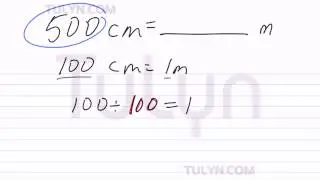 TULYN.COM
500 cm = ________ m
100 cm = 1m
Tulyn
100 ÷ 100 = 1
TULYN.COM